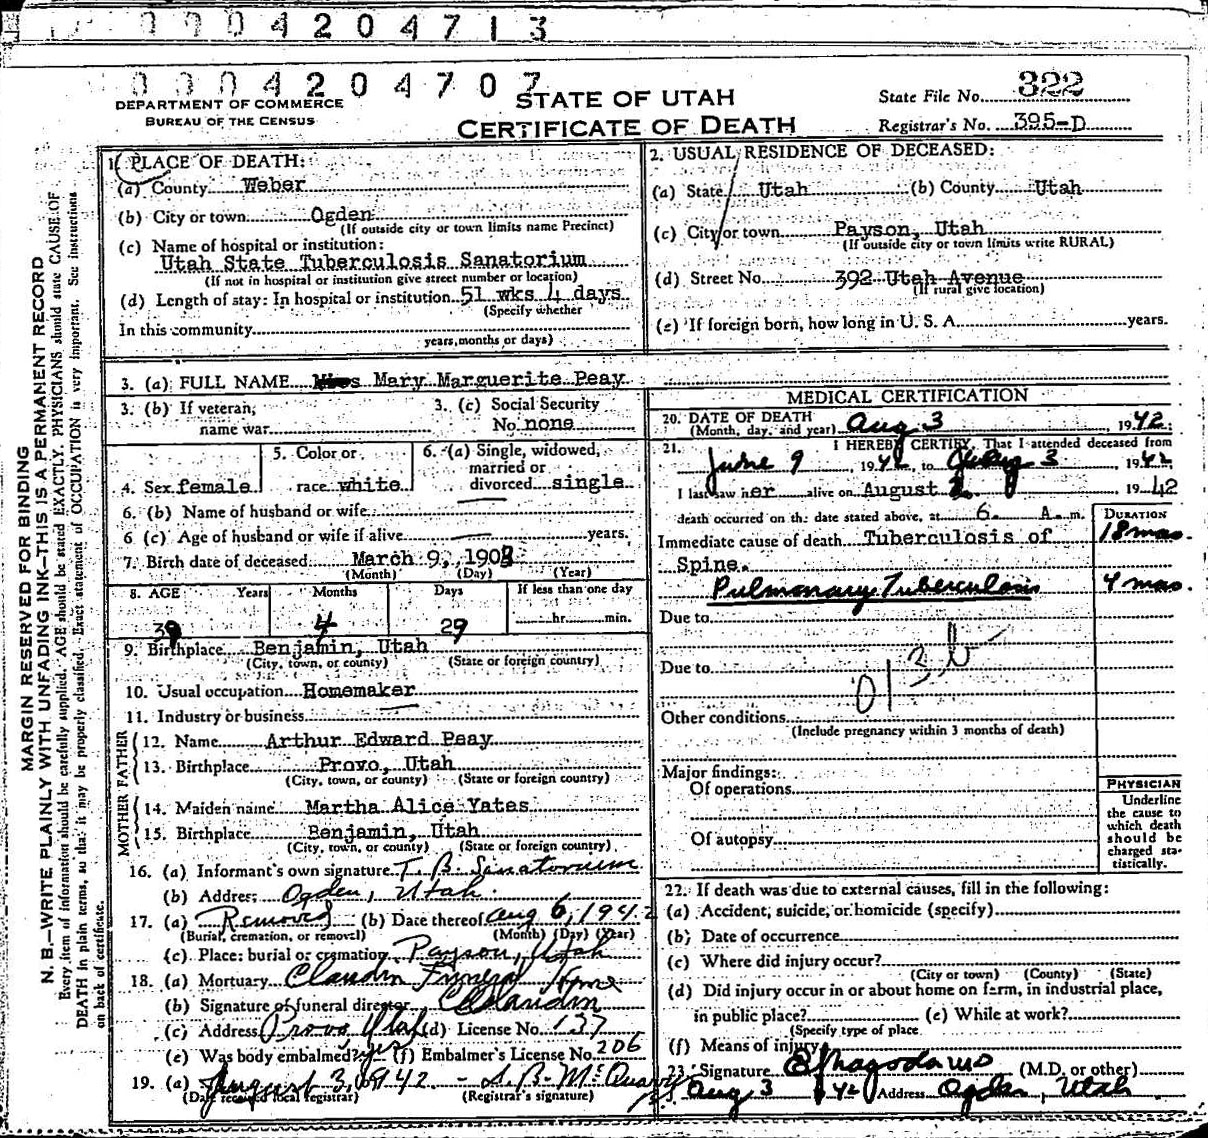 0004204713
0004204707
DEPARTMENT OF COMMERCE
BUREAU OF THE CENSUS
STATE OF UTAH
CERTIFICATE OF DEATH
State File No. 322
Registrar's No. 395-D
MARGIN RESERVED FOR BINDING
N. B.—WRITE PLAINLY WITH UNFADING INK—THIS IS A PERMANENT RECORD
Every item of information should be carefully supplied. AGE should be stated EXACTLY. PHYSICIANS should state CAUSE OF
DEATH in plain terms, so that it may be properly classified. Exact statement of OCCUPATION is very important. See instructions
on back of certificate.
1. PLACE OF DEATH:
(a) County Weber
(b) City or town Ogden
(If outside city or town limits name Precinct)
(c) Name of hospital or institution:
Utah State Tuberculosis Sanatorium
(If not in hospital or institution give street number or location)
(d) Length of stay: In hospital or institution 51 wks 4 days
(Specify whether
In this community
years, months or days)
2. USUAL RESIDENCE OF DECEASED:
(a) State Utah (b) County Utah
(c) City or town Payson, Utah
(If outside city or town limits write RURAL)
(d) Street No. 392 Utah Avenue
(If rural give location)
(e) If foreign born, how long in U. S. A. years.
3. (a) FULL NAME Miss Mary Marguerite Peay
3. (b) If veteran, name war
3. (c) Social Security No. none
4. Sex female
5. Color or race white
6. (a) Single, widowed, married or divorced single
6. (b) Name of husband or wife
6 (c) Age of husband or wife if alive years.
7. Birth date of deceased March 9, 1903
(Month) (Day) (Year)
8. AGE Years Months Days If less than one day
39 4 29 hr. min.
9. Birthplace Benjamin, Utah
(City, town, or county) (State or foreign country)
10. Usual occupation Homemaker
11. Industry or business
FATHER
12. Name Arthur Edward Peay
13. Birthplace Provo, Utah
(City, town, or county) (State or foreign country)
MOTHER
14. Maiden name Martha Alice Yates
15. Birthplace Benjamin, Utah
(City, town, or county) (State or foreign country)
16. (a) Informant's own signature T. B. Sanatorium
(b) Address Ogden, Utah.
17. (a) Removed (b) Date thereof Aug 6, 1942
(Burial, cremation, or removal) (Month) (Day) (Year)
(c) Place: burial or cremation Payson, Utah
18. (a) Mortuary Claudin Funeral Home
(b) Signature of funeral director Claudin
(c) Address Provo Utah (d) License No. 137
(e) Was body embalmed? yes (f) Embalmer's License No. 206
19. (a) August 3, 1942 - S. B. McQuarry
(Date received local registrar) (Registrar's signature)
MEDICAL CERTIFICATION
20. DATE OF DEATH Aug 3, 1942
(Month, day, and year)
21. I HEREBY CERTIFY, That I attended deceased from
June 9, 1942, to Aug 3 1942
I last saw her alive on August 1942
death occurred on the date stated above, at 6 A. m.
DURATION
Immediate cause of death Tuberculosis of 18 mos.
Spine.
Pulmonary Tuberculosis 4 mos.
Due to
Due to
013b
Other conditions
(Include pregnancy within 3 months of death)
Major findings:
Of operations
Of autopsy
PHYSICIAN
Underline
the cause to
which death
should be
charged sta-
tistically.
22. If death was due to external causes, fill in the following:
(a) Accident, suicide, or homicide (specify)
(b) Date of occurrence
(c) Where did injury occur?
(City or town) (County) (State)
(d) Did injury occur in or about home on farm, in industrial place,
in public place? (e) While at work?
(Specify type of place
(f) Means of injury
23. Signature (M.D. or other)
Aug 3 42 Address Ogden, Utah